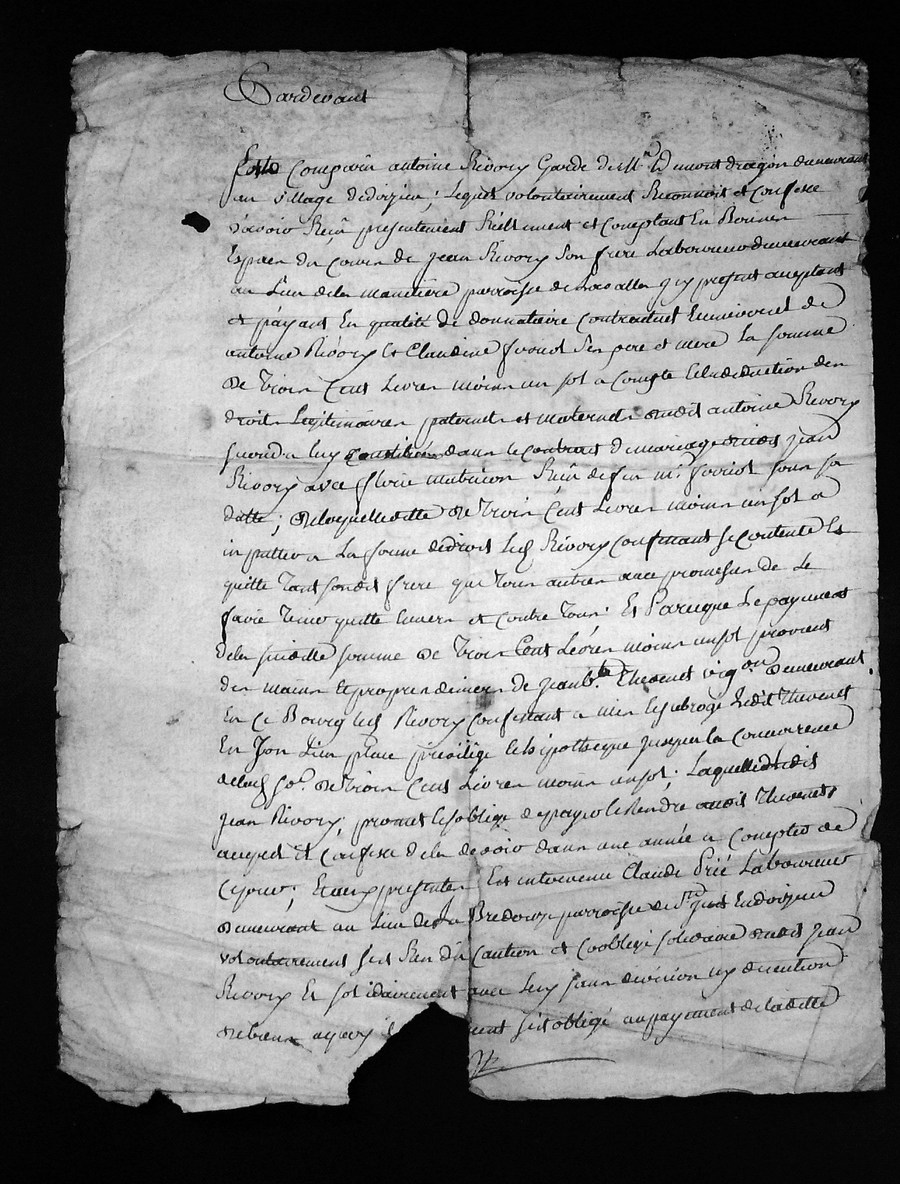 Pardevant
Comparu antoine Rivory Garde de Mr demeurant
au village dedoizieu; Lequel volontairement Reconnoit et Confesse
d'avoir Reçû presentement Réellement et Comptant En Bonnes
Especes du Cours de Jean Rivory Son frere Laboureur demeurant
au Lieu dela parroisse de icy present acceptant
et payant En qualité de donnataire Contractuel de
antoine Rivory Et Claudine ses pere et mere La somme
de Trois Cent Livres moins un sol a Compte Et deduction des
droits Legitimaires paternels et maternels audit antoine Rivory
a luy Constitués dans le contrat de mariage dudit Jean
Rivory avec Reçû de feu me. sous sa
datte; de laquelle ditte de Trois Cent Livres moins un sol a
La forme dedroit Led Rivory Confessant se Contente Et
quitte Tant sondit frere que Tous autres avec promesses de Le
faire Tenir quitte Envers et Contre Tous; Et Parceque Le payement
dela susditte somme de Trois Cent Livres moins un sol provient
des mains et propres deniers de Jean Bte. Thevenet vigon demeurant
En Ce Bourg Led Rivory Confessant a mis et subrogé Ledit Thevenet
En son Lieu place privilege et hipotheque Jusqu'a la Concurrence
de lad so. de Trois Cent Livres moins un sol; Laquelle Ledit
Jean Rivory, promet et s'oblige de payer et Rendre audit Thevenet
accepté et Confesse de la devoir dans une année a Compter de
Ce jour; Et aux presentes Est intervenu Claude Prié Laboureur
demeurant au Lieu de parroisse de st Just Endoizieu
volontairement s'est Rendû Caution et Coobligé solidaire dudit Jean
Rivory Et solidairement avec Luy sans division ny
de biens s'est obligé au payement de ladite